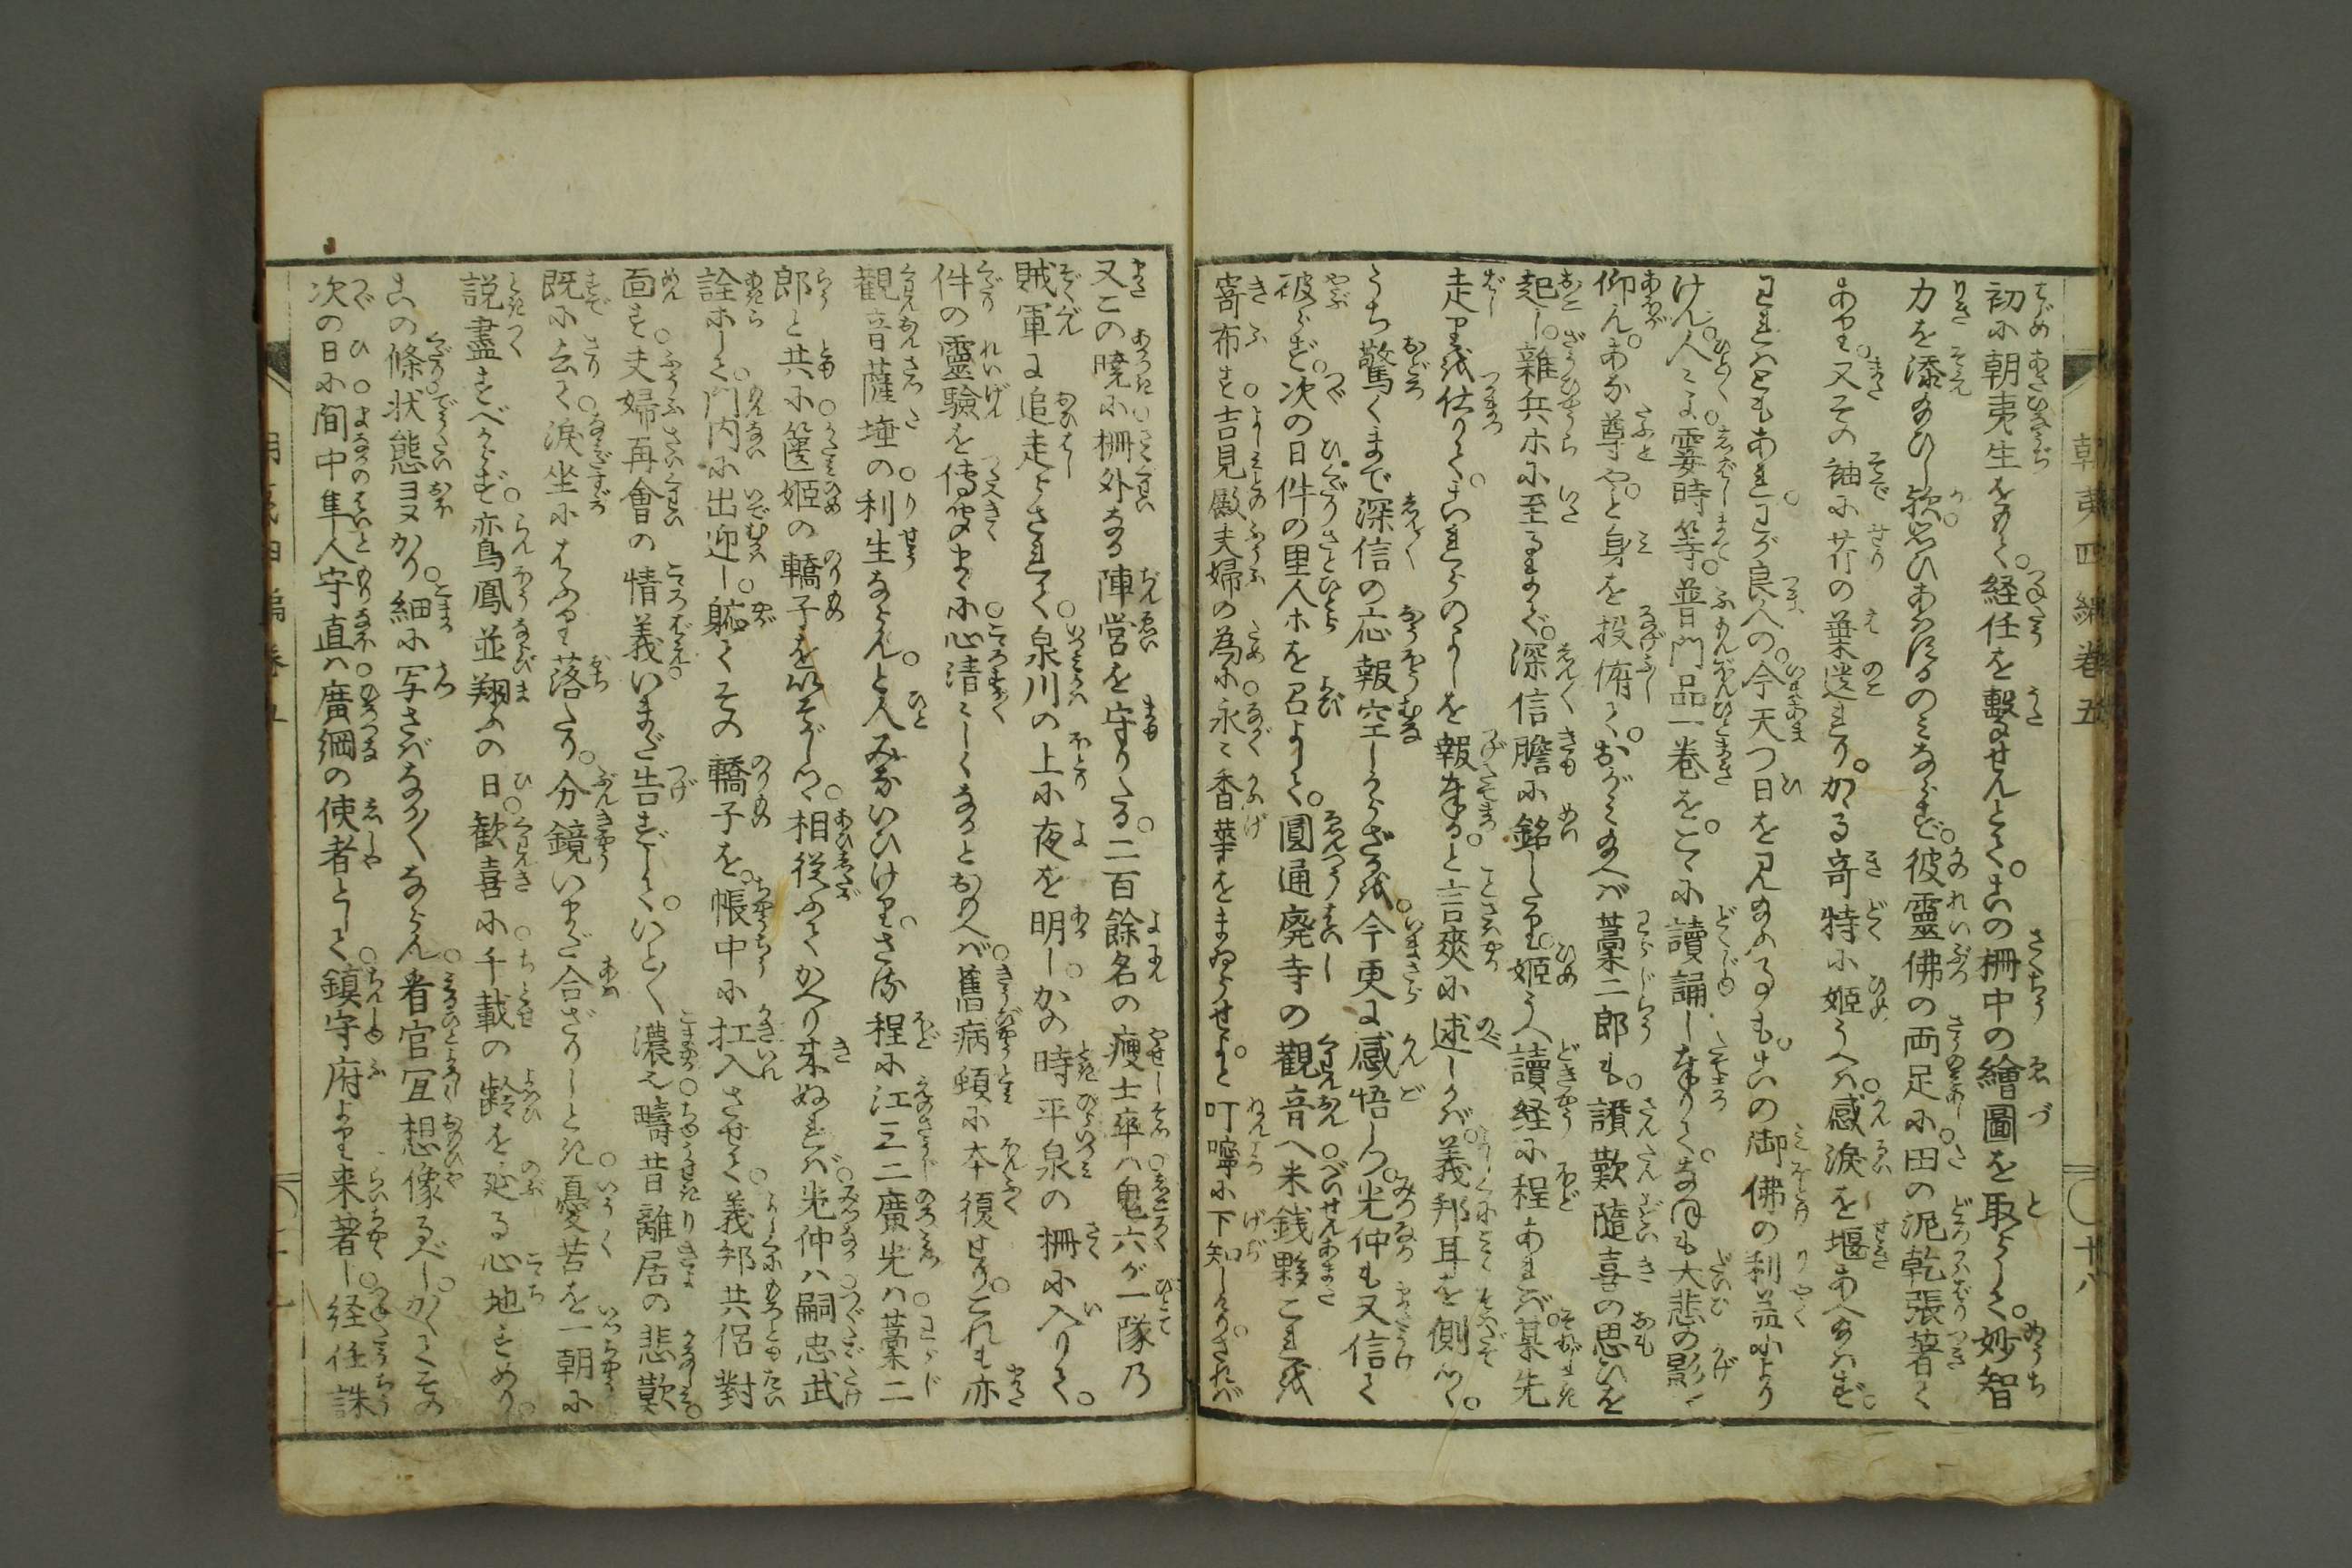 朝夷四編巻五
十八
初に朝夷生をもて。経任を撃せんとて。この柵中の繪圖を取よして。妙智
力を添給ひし欤。思ひあはするのみならず。彼靈佛の両足に。田の泥乾張著て
あり。又その袖に芹の葉遺れり。かゝる奇特に姫うへは。感涙を堰あへ給はず。
われはともあれ。わが良人の。今天つ日を見給ふるも。この御佛の利益により
けん。人々よ。霎時等。普門品一巻を。こゝに讀誦し奉りて。なほも大悲の影
仰ん。あな尊やと身を投俯て。おがみ給へば藁二郎も。讃歎隨喜の思ひを
起し。雜兵ホに至るまで。深信膽に銘したり。姫うへ讀経に程あれば。某先
走り感仕りて。これらのよしを報奉ると。言爽に述しかば。義邦耳を側つゝ。
うち驚くまで深信の応報空しからざるを。今更に感悟しつ。光仲も又信て
破らず。次の日件の里人ホを召よして。圓通廃寺の觀音へ米銭夥これを
寄布す。吉見殿夫婦の為に。永く香華をまゐらせよ。と叮嚀に下知しけり。されば
又この曉に柵外なる陣営を守りたる。二百餘名の痩士卒は。鬼六が一隊乃
賊軍に追走らされて。泉川の上に夜を明し。かの時平泉の柵に入りて。
件の靈驗を傳聞まゝに。心清々しくなるとおもへば。舊病頓に本復せり。これも亦
觀音薩埵の利生ならん。と人みないひけり。さる程に江三二廣光は。藁二
郎と共に。篋姫の轎子をいそがしつ。相従ふてかへり来ぬれば。光仲は嗣忠武
詮ホして。門内に出迎し。軈てその轎子を。帳中に扛入させて。義邦共侶對
面す。夫婦再會の情義いまだ告ずして。いとゞ濃也。疇昔離居の悲歎
既に去て。涙坐にはふり落たり。分鏡いまだ合ざりしとき。憂苦を一朝に
説盡すべからず。亦鳥鳳並翔ふの日。歓喜に千載の齢を延る心地すめり。
この條状態ヨヌかり。細に写さばなか〳〵ならん。看官宜想像るべし。かくてその
次の日に。間中隼人守直は。廣綱の使者として。鎮守府より来著し。経任誅